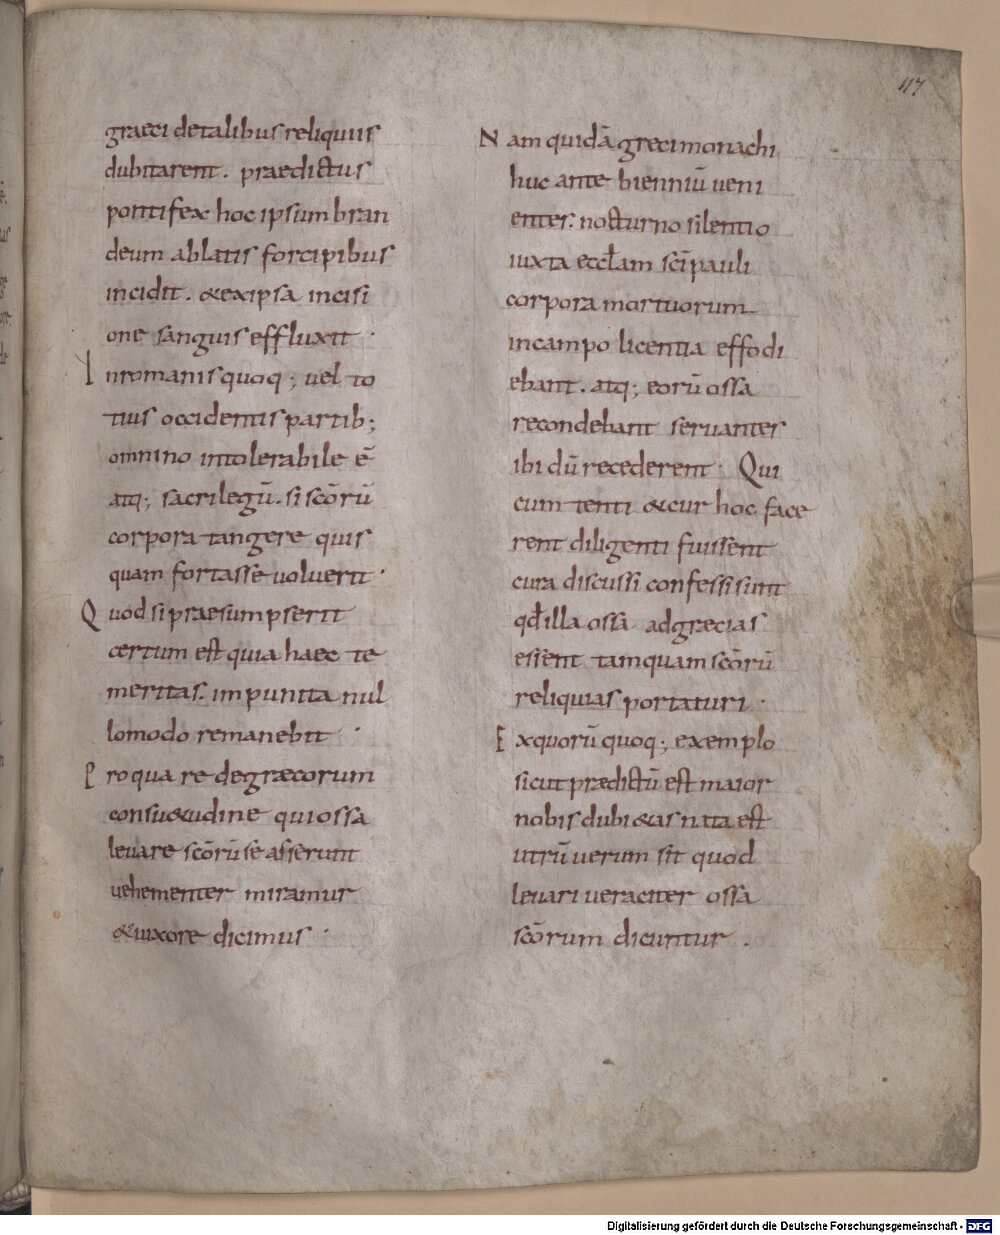 117
graeci detalibus reliquiis
dubitarent. praedictus
pontifex hoc ipsum bran
deum ablatis forcipibus
incidit. & exipsa incisi
one sanguis effluxit ·
Inromanis quoq; vel to
tius occidentis partib;
omnino intolerabile ē
atq; sacrilegū. si scōrū
corpora tangere quis
quam fortasse voluerit ·
Quod si praesumpserit
certum est quia haec te
meritas. impunita nul
lomodo remanebit ·
Pro qua re degræcorum
consu&udine qui ossa
levare scōrū se asserunt
vehementer miramur
& vixore dicimus ·
Nam quidā greci monachi
huc ante bienniū veni
entes. nocturno silentio
iuxta eccłam scī pauli
corpora mortuorum
incampo licentia effodi
ebant. atq; eorū ossa
recondebant servantes
ibi dū recederent · Qui
cum tenti & cur hoc face
rent diligenti fuissent
cura discussi confessi sunt
qđ illa ossa adgræcias
essent tamquam scōrū
reliquias portaturi ·
Exquorū quoq; exemplo
sicut prædictū est maior
nobis dubi&as nata est
utrū verum sit quod
levari veraciter ossa
scōrum dicuntur .
Digitalisierung gefördert durch die Deutsche Forschungsgemeinschaft - DFG